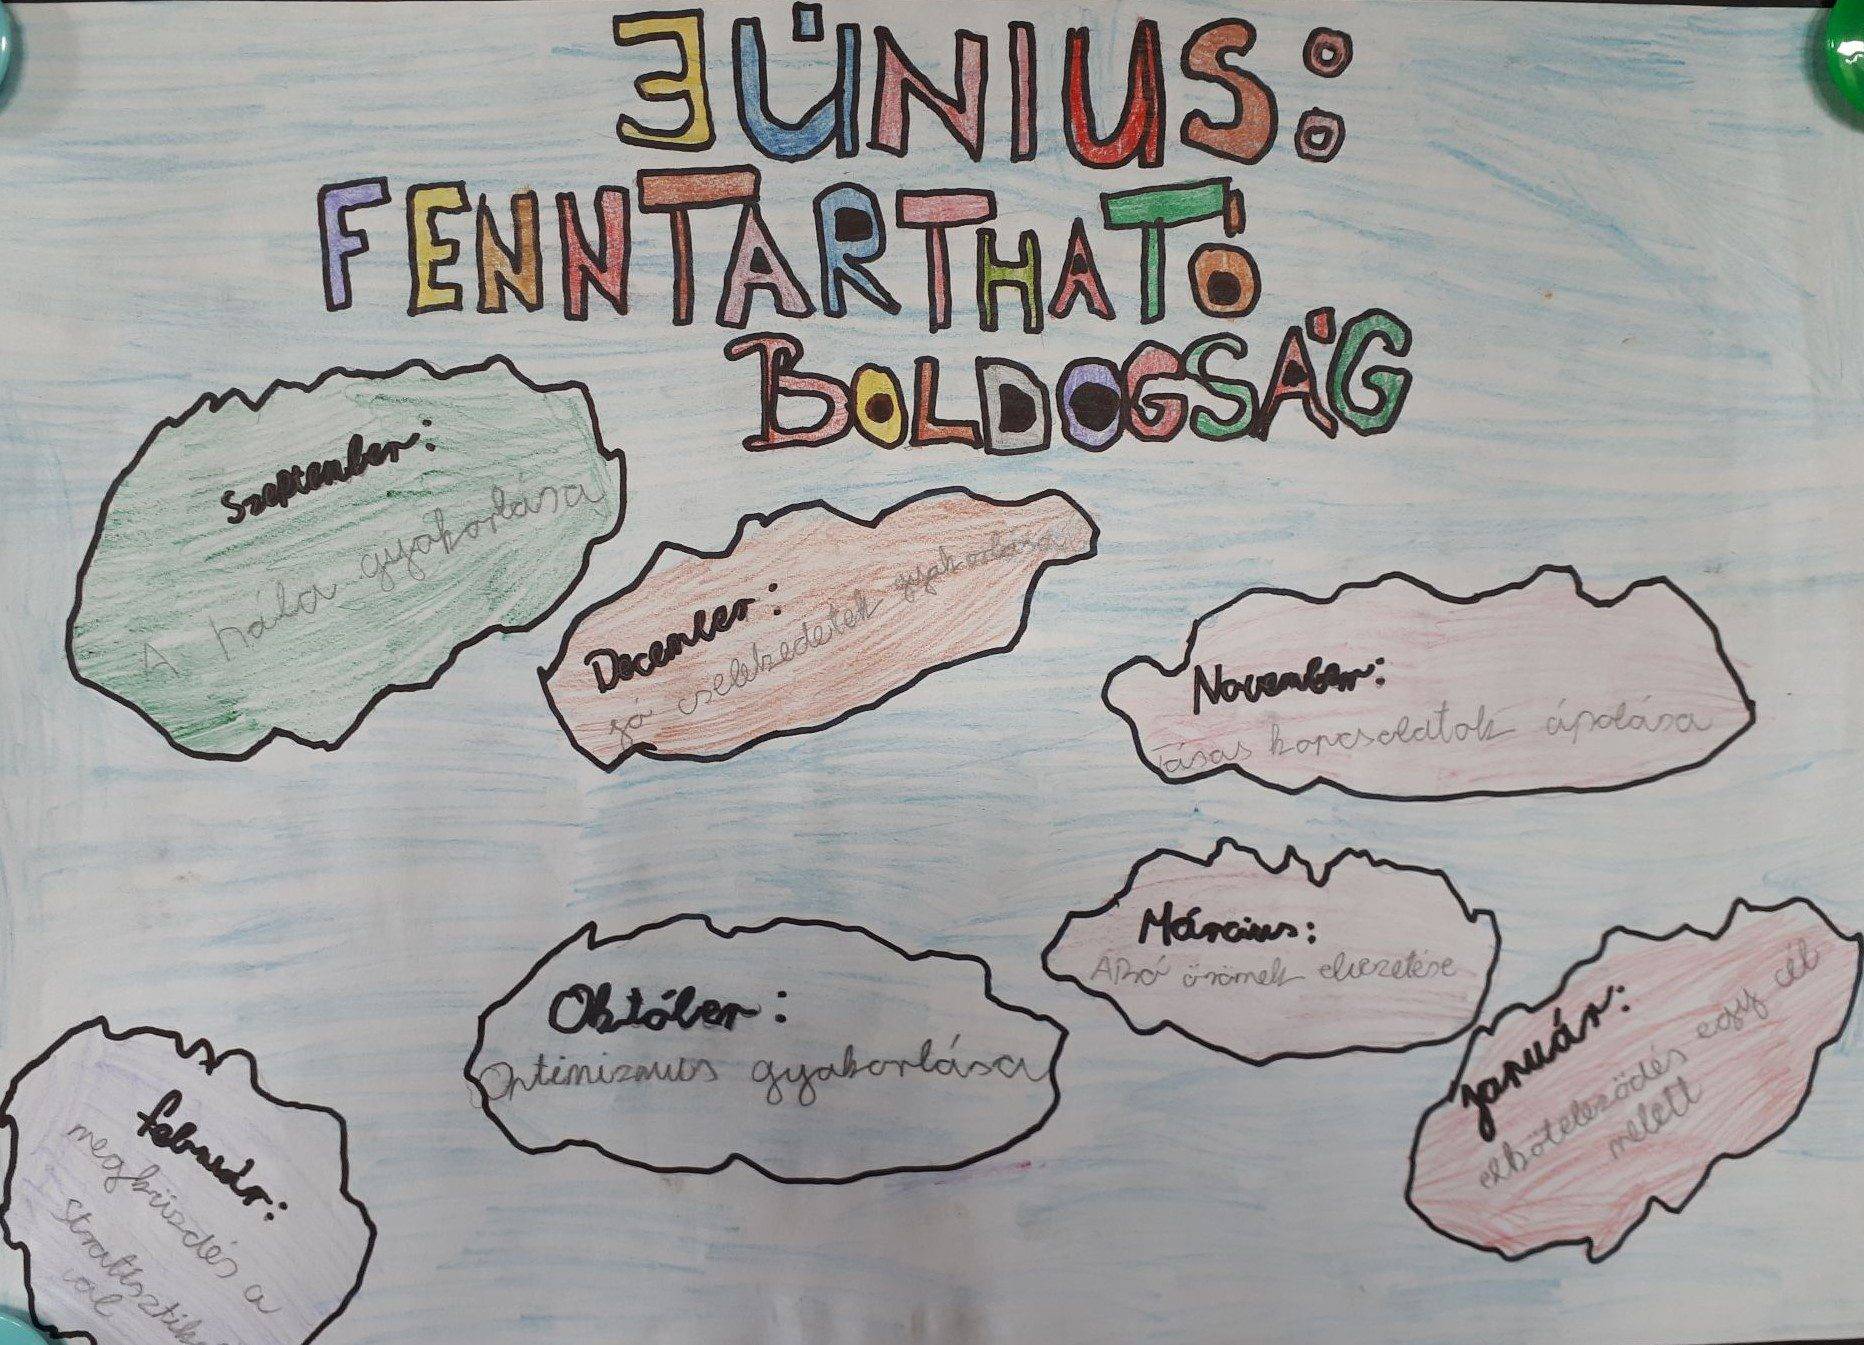 JÚNIUS:
FENNTARTHATÓ
BOLDOGSÁG
Szeptember:
A hála gyakorlása
December:
jó cselekedetek gyakorlása
November:
Tásas kapcsolatok ápolása
Március:
Apró örömek élvezetése
Október:
Optimizmus gyakorlása
január:
elköteleződés egy cél
mellett
február:
megküzdés a